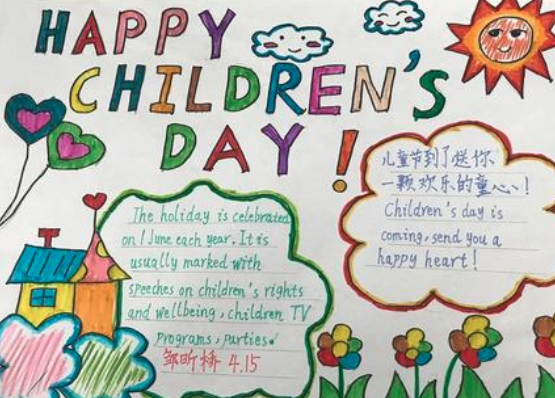 HAPPY
CHILDREN'S
DAY!
儿童节到了送你
一颗欢乐的童心!
Children's day is
coming, send you a
happy heart!
The holiday is celebrated
on 1 June each year. It is
usually marked with
speeches on children's rights
and wellbeing, children TV
programs, parties.
邹昕桥 4.15